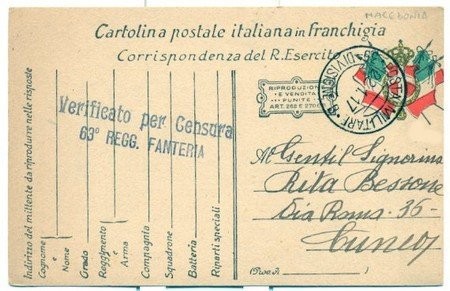 MACEDONIA
Cartolina postale italiana in franchigia
Corrispondenza del R. Esercito
POSTA MILITARE
DIVISIONE
RIPRODUZIONE
E VENDITA
PUNITE
ART. 262 E 270
Verificato per Censura
63° REGG. FANTERIA
Indirizzo del mittente da riprodurre nelle risposte
Cognome e Nome
Grado
Reggimento o Arma
Compagnia
Squadrone
Batteria
Riparti speciali
Al Gentil Signorina
Rita Bessone
Via Roma. 36-
Cuneo
(Prov.          )